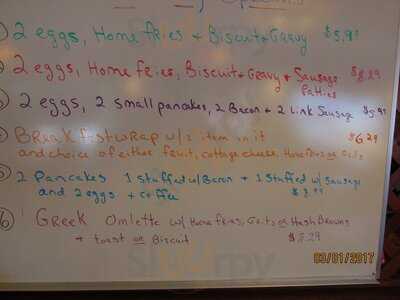 Specials
) 2 eggs, Home fries + Biscuit + Gravy $5.99
) 2 eggs, Home fries, Biscuit + Gravy + Sausage Patties
) 2 eggs, 2 small pancakes, 2 Bacon + 2 Link Sausage $5.99
) Breakfast wrap w/ 2 item in it $6.29
and choice of either fruit, cottage cheese, Home fries or Grits
5 2 Pancakes 1 stuffed w/ Bacon + 1 stuffed w/ Sausage
and 2 eggs + coffee
6) Greek Omlette w/ Home fries, Grits or Hash Browns
+ toast or Biscuit $8.29
03/01/2017